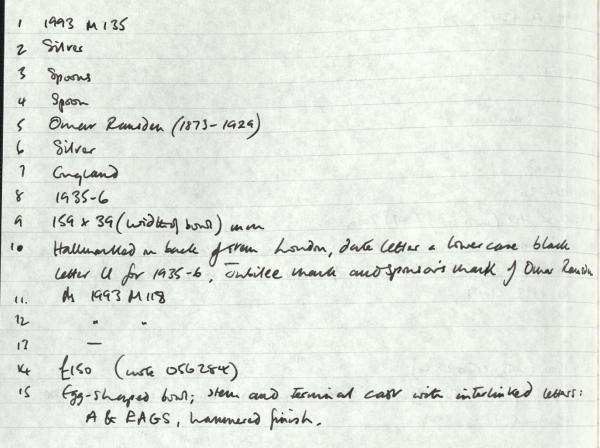 1 1993 M 135
2 Silver
3 Spoons
4 Spoon
5 Omar Ramsden (1873-1929)
6 Silver
7 England
8 1935-6
9 159 x 39 (width of bowl) mm
10 Hallmarked on back of stem London, date letter a lower case black
letter U for 1935-6, Jubilee mark and sponsor's mark of Omar Ramsden
11. As 1993 M 118
12 " "
13 —
14 £150 (note 056284)
15 Egg-shaped bowl; stem and terminal cast with interlinked letters:
A & EAGS, hammered finish.